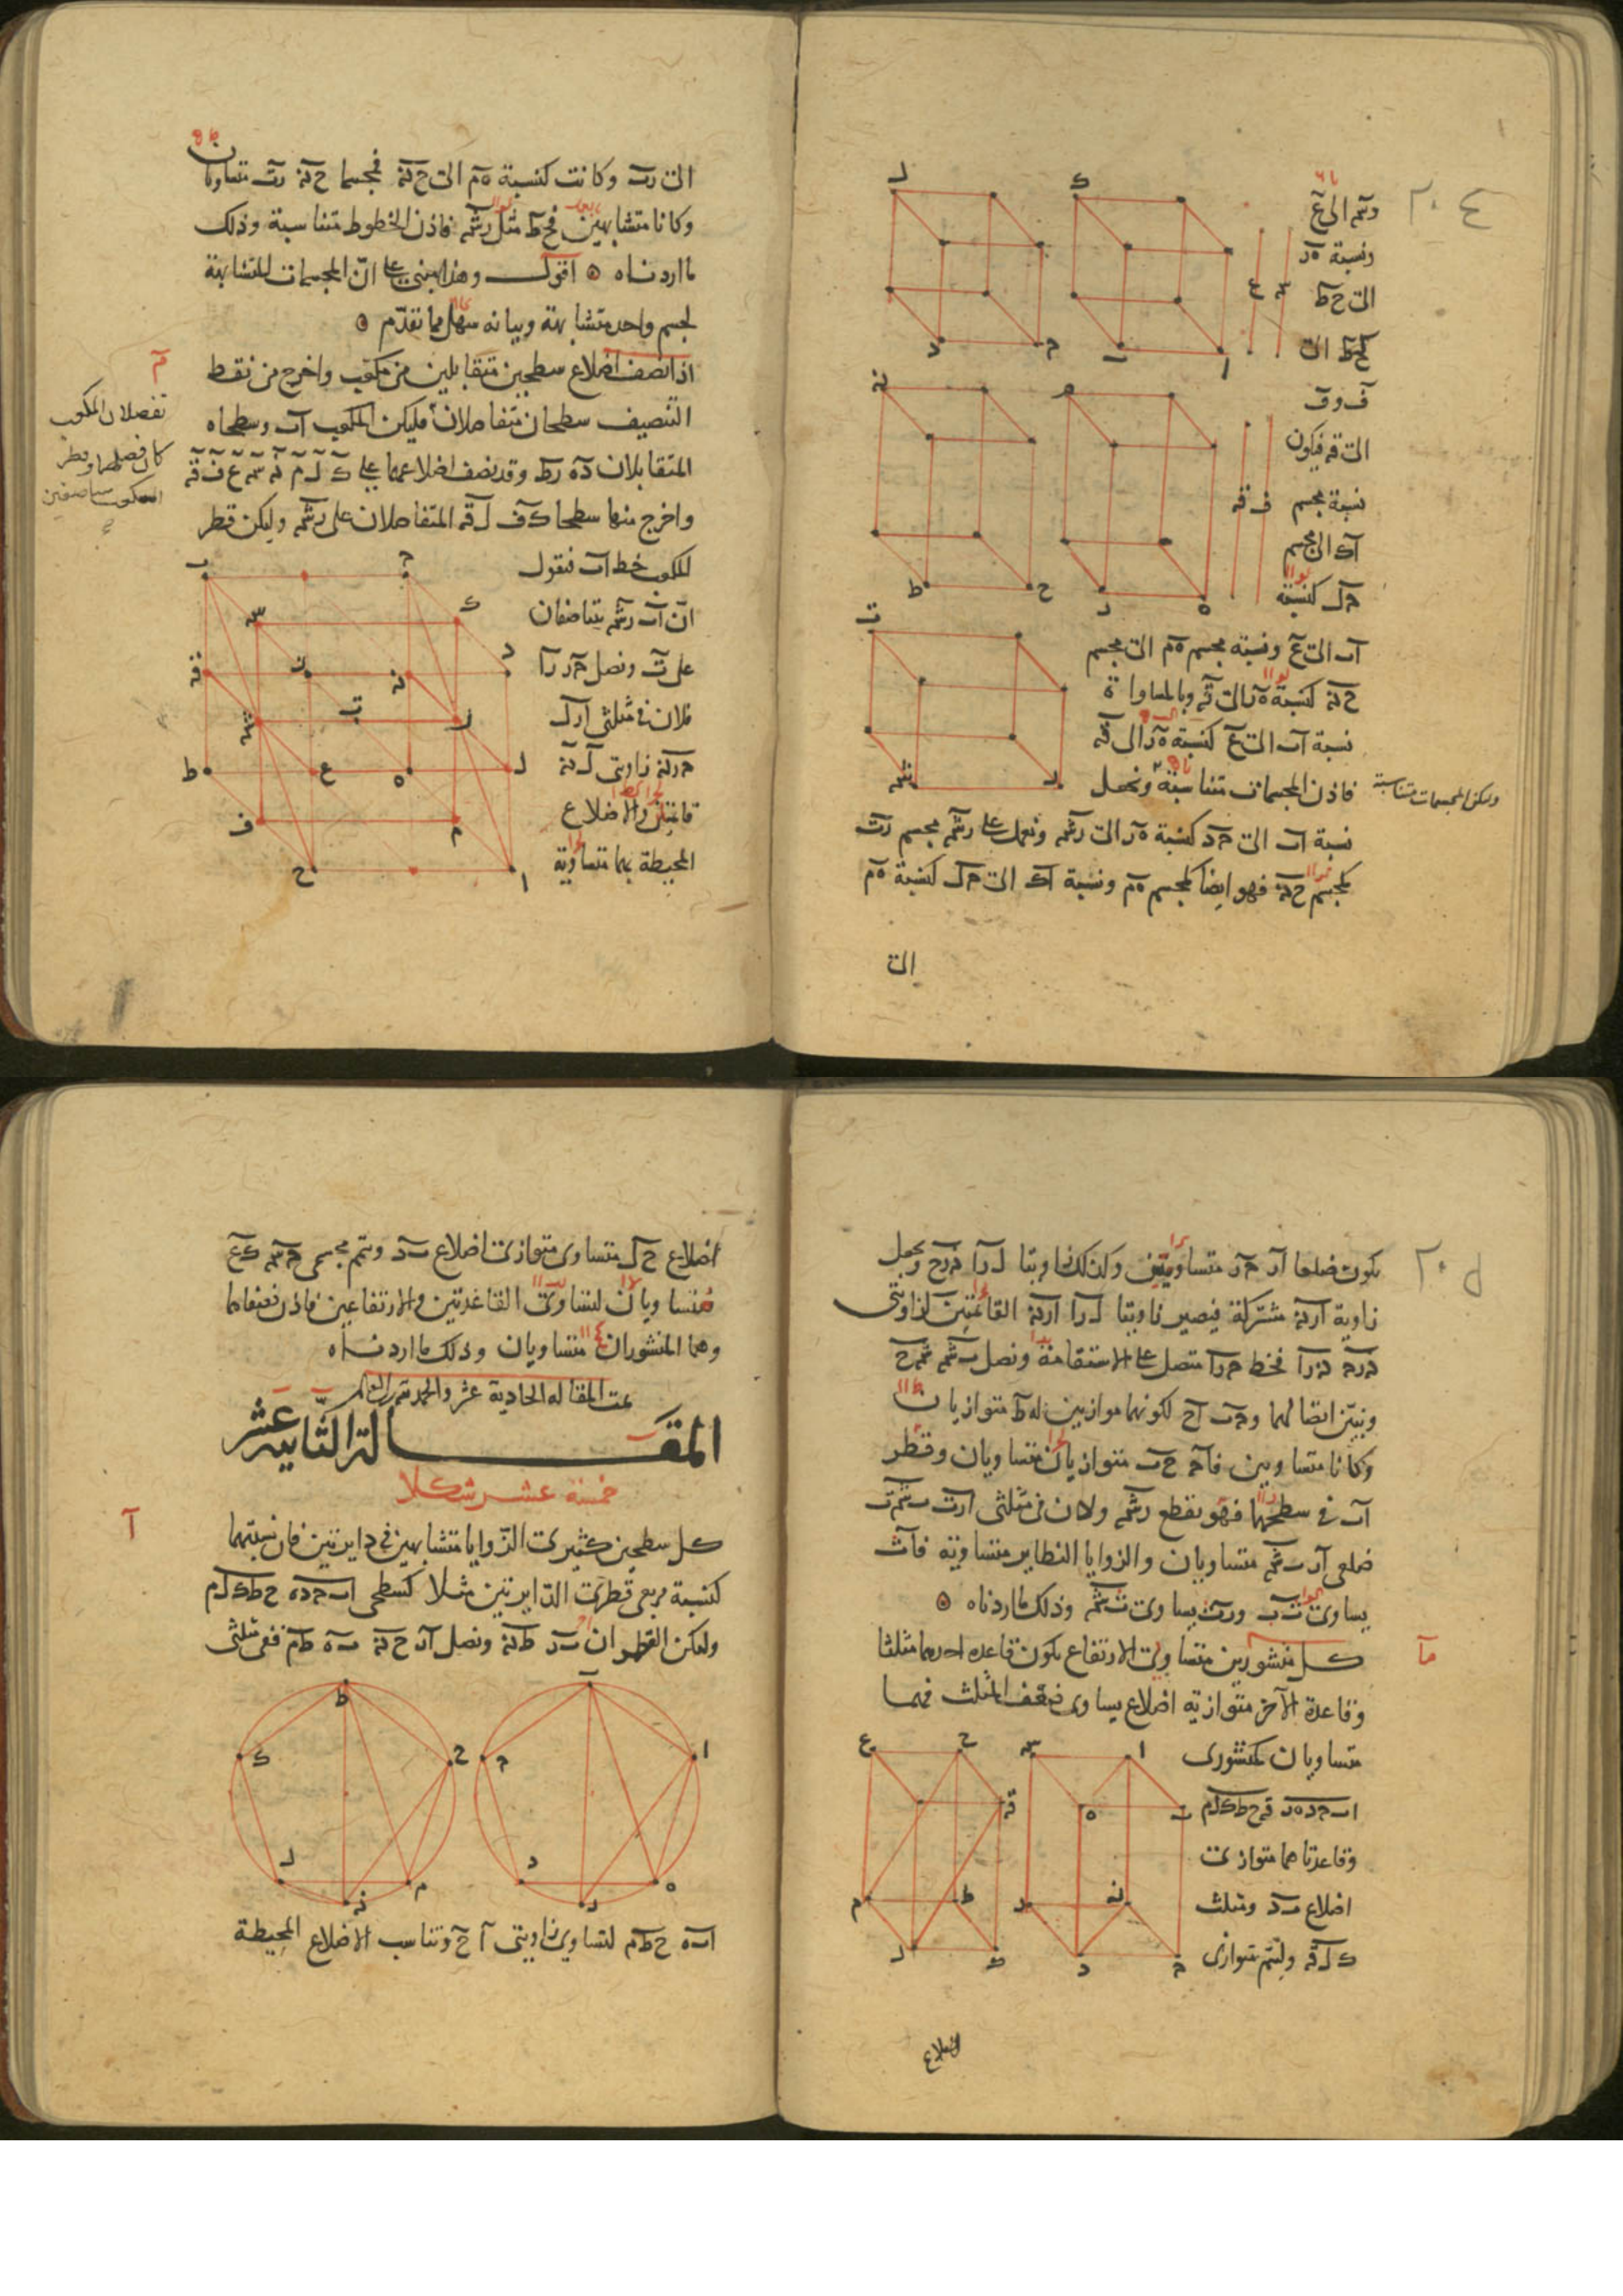 وشه الى ع
ونسبة ه ر
الى ح ط
كح ط الى
ف و ق
الى قه فيكون
نسبة مجسم
ا ك الى مجسم
ح ل كنسبة
ا ب الى ع ونسبة مجسم ه م الى مجسم
ح نه كنسبة ه ر الى قه وبالمساواة
نسبة ا ب الى ع كنسبة ه ر الى قه
فاذن المجسمات متناسبة ونجعل
ولتكن المجسمات متناسبة
نسبة ا ب الى ح د كنسبة ه ر الى رشه ونعمل على رشه مجسم رت
كمجسم ح نه فهو ايضا كمجسم ه م ونسبة ا ك الى ح ل كنسبة ه م
الى
الى رت وكانت كنسبة ه م الى ح نه فمجسما ح نه رت متساويان
وكانا متشابهين فح ط مثل رشه فاذن الخطوط متناسبة وذلك
ما اردناه اقول وهذا مبنى على ان المجسمات المتشابهة
لجسم واحد متشابهة وبيانه سهل مما تقدم
م
اذا نصف اضلاع سطحين متقابلين من مكعب واخرج من نقط
التنصيف سطحان متفاصلان فليكن المكعب ا ب وسطحاه
المتقابلان د ه ر ط وقد نصف اضلاعهما على ك ل م نه سه ع ف قه
واخرج منها سطحا ك ف ل قه المتفاصلان على رشه وليكن قطر
المكعب خط ا ب فنقول
ان ا ب رشه يتناصفان
على ت ونصل ح ر ر ا
فلان فى مثلثى ا ر ل
ح ر نه زاويتى ل نه
قائمتان والاضلاع
المحيطة بهما متساوية
يكون ضلعا ا ر ح ر متساويين وكذلك زاويتا ل ر ا ح ر نه ونجعل
زاوية ا ر نه مشتركة فيصير زاويتا ل ر ا ا ر نه القائمتين كزاويتى
ح ر نه نه ر ا فخط ح ر ا متصل على الاستقامة ونصل ب شه شه ح
ونبين ايضا لهما و ح ب ا ح لكونهما موازيين له ط متوازيان
وكانا متساويين فا ح ح ب متوازيان متساويان وقطر
ا ب فى سطحهما فهو يقطع رشه ولان فى مثلثى ا ر ت ب شه ت
ضلعى ا ر ب شه متساويان والزوايا النظاير متساوية فا ت
يساوى ت ب و ر ت يساوى ت شه وذلك ما اردناه
ما
كل منشورين متساويى الارتفاع يكون قاعدة احدهما مثلثا
وقاعدة الآخر متوازية اضلاع يساوى ضعف المثلث فهما
متساويان كمنشورى
ا ب ح د ه ر قه ح ط ك ل م
وقاعدتاهما متوازى
اضلاع ب د ومثلث
ك ل قه وليتم متوازى
اضلاع
اضلاع ح ل متساوى متوازى اضلاع ب د ويتم مجسمى ح سه ك ع
متساويان لتساوى القاعدتين والارتفاعين فاذن نصفاهما
وهما المنشوران متساويان وذلك ما اردناه
تمت المقالة الحادية عشر والحمد لله رب العالمين
المقالة الثانية عشر
خمسة عشر شكلا
ا
كل سطحين كثيرى الزوايا متشابهين فى دايرتين فان نسبتهما
كنسبة مربعى قطرى الدايرتين مثلا كسطحى ا ب ح د ه ح ط ك ل م
وليكن القطران ب ر ط نه ونصل ا ر ح نه ب ه ط م ففى مثلثى
ا ب ه ح ط م لتساوى زاويتى ا ح وتناسب الاضلاع المحيطة